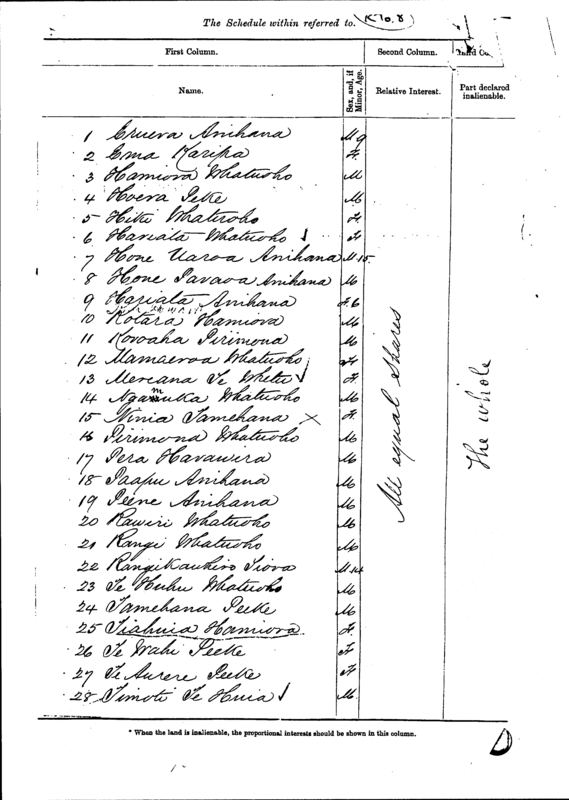 The Schedule within referred to. (K to. 8)
First Column. Second Column. Third Co
Name. Sex, and, if Minor, Age. Relative Interest. Part declared inalienable.
1 Eruera Anihana M 9
2 Ema Karipa F.
3 Hamiora Whatuoho M
4 Hoera Peke M
5 Hiki Whatuoho F
6 Hariata Whatuoho F
7 Hone Uaroa Anihana M 15
8 Hone Paraoa Anihana M
9 Hariata Anihana F. 6
10 Kotara Hamiora M
11 Koroaha Pirimona M
12 Mamaeroa Whatuoho F
13 Mereana Te Whetu F.
14 Ngamuka Whatuoho M
15 Ninia Tamehana X F.
16 Pirimona Whatuoho M
17 Pera Harawira M
18 Paapu Anihana M
19 Peene Anihana M
20 Rawiri Whatuoho M
21 Rangi Whatuoho M
22 Rangikauhiro Tiora M 14
23 Te Huhu Whatuoho M
24 Tamehana Peeke M
25 Tiahuia Hamiora F.
26 Te Wahi Peeke F
27 Te Aurere Peeke F
28 Timoti Te Huia M.
All equal shares
The whole
* When the land is inalienable, the proportional interests should be shown in this column.